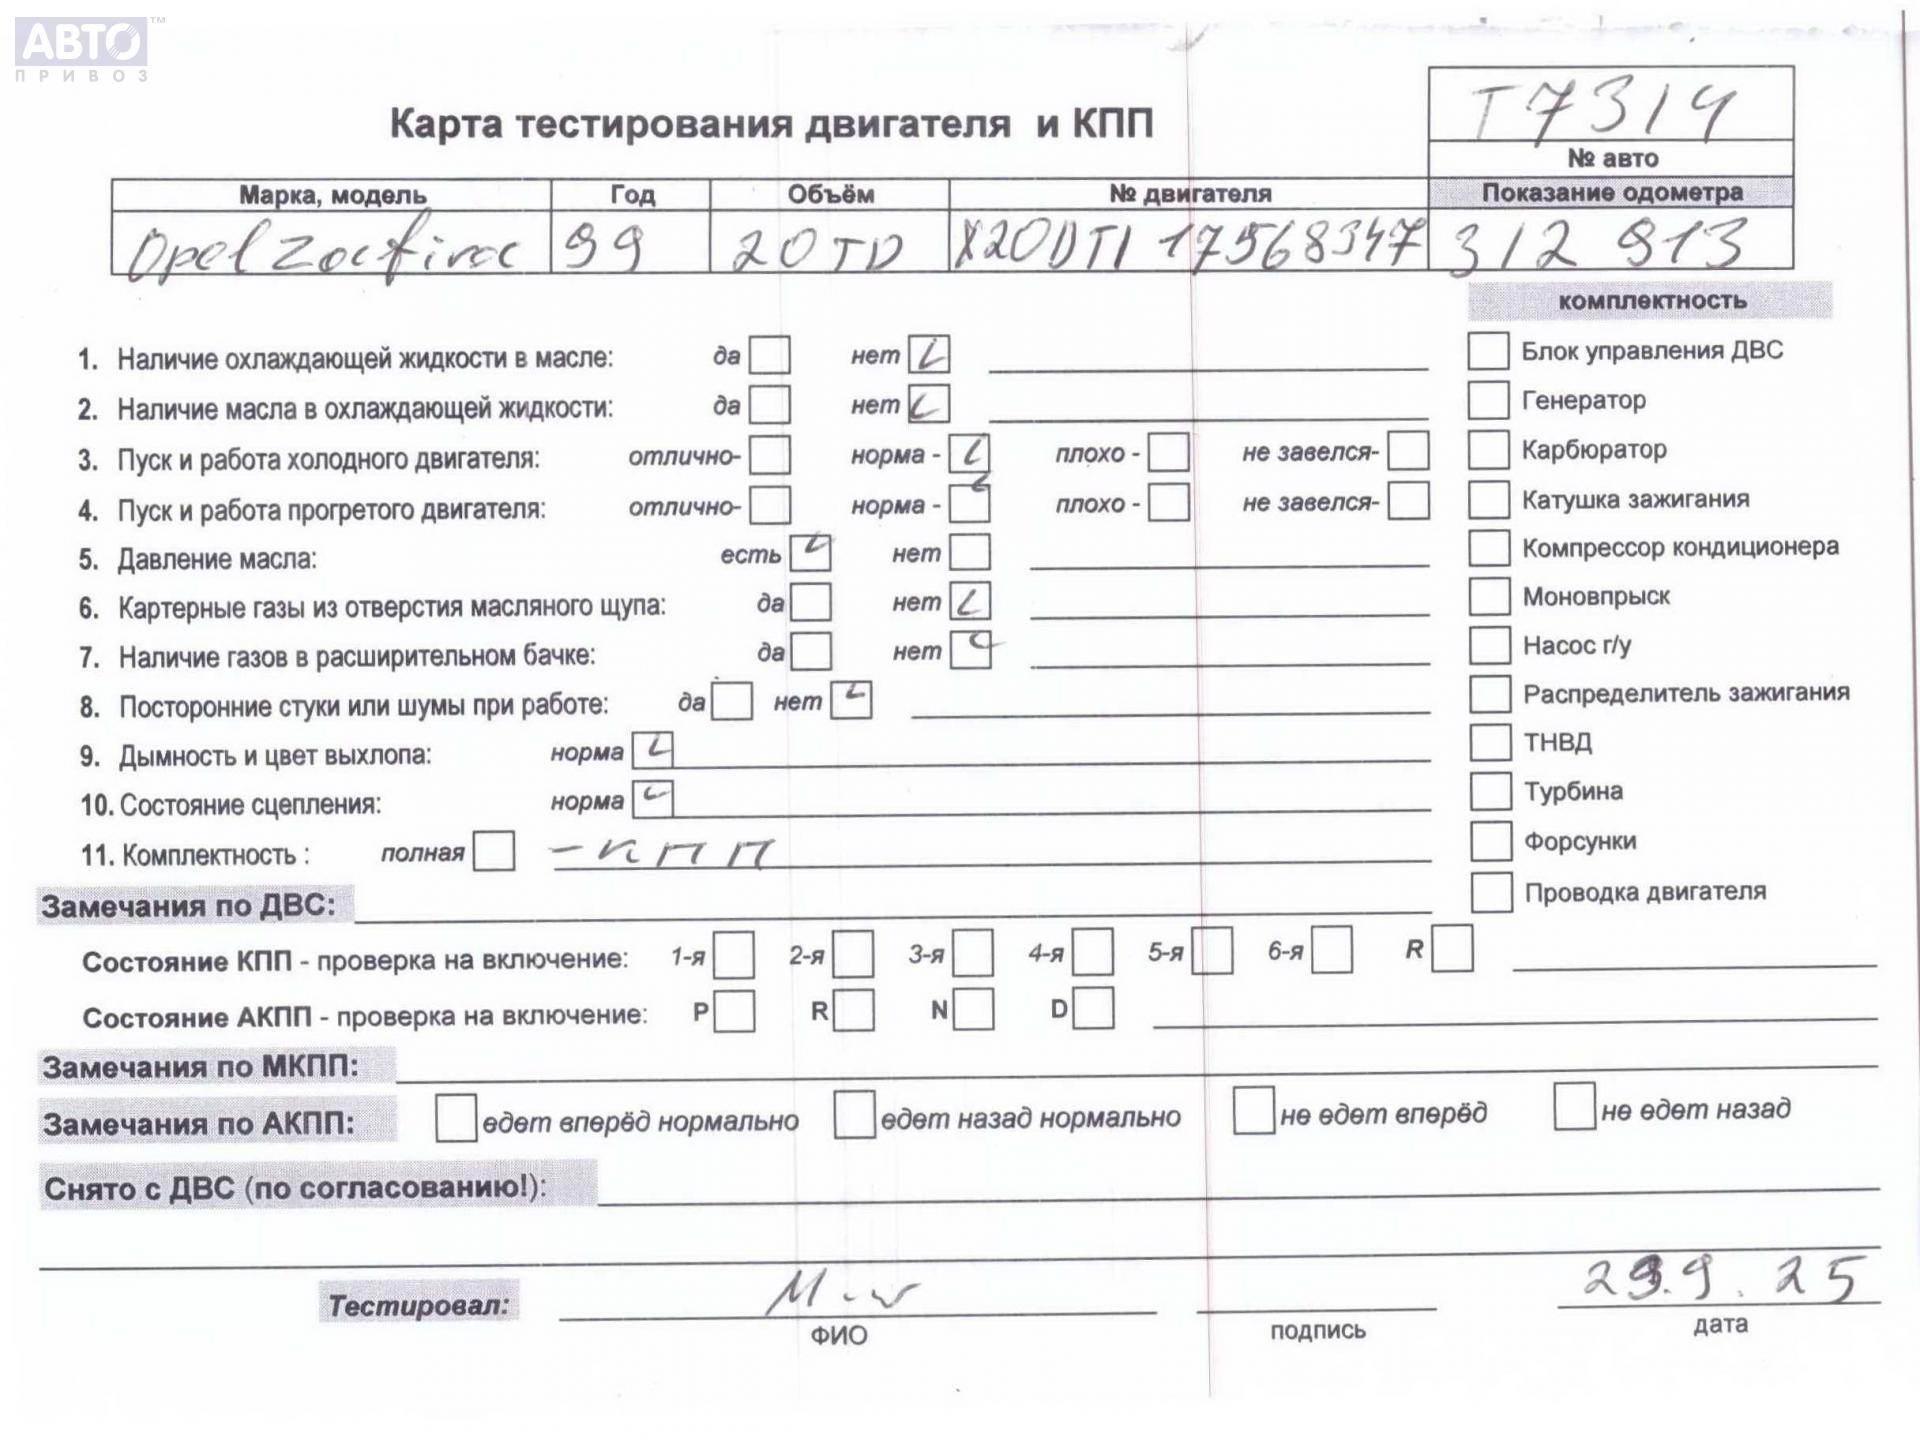 АВТО™
ПРИВОЗ
Т7314
Карта тестирования двигателя и КПП
№ авто
Марка, модель Год Объём № двигателя Показание одометра
Opel Zafira 99 20TD X20DTI 17568347 312 913
комплектность
1. Наличие охлаждающей жидкости в масле: да нет
Блок управления ДВС
2. Наличие масла в охлаждающей жидкости: да нет
Генератор
3. Пуск и работа холодного двигателя: отлично- норма - плохо - не завелся-
Карбюратор
4. Пуск и работа прогретого двигателя: отлично- норма - плохо - не завелся-
Катушка зажигания
5. Давление масла: есть нет
Компрессор кондиционера
6. Картерные газы из отверстия масляного щупа: да нет
Моновпрыск
7. Наличие газов в расширительном бачке: да нет
Насос г/у
8. Посторонние стуки или шумы при работе: да нет
Распределитель зажигания
9. Дымность и цвет выхлопа: норма
ТНВД
10. Состояние сцепления: норма
Турбина
11. Комплектность : полная - КПП
Форсунки
Замечания по ДВС:
Проводка двигателя
Состояние КПП - проверка на включение: 1-я 2-я 3-я 4-я 5-я 6-я R
Состояние АКПП - проверка на включение: P R N D
Замечания по МКПП:
Замечания по АКПП: едет вперёд нормально едет назад нормально не едет вперёд не едет назад
Снято с ДВС (по согласованию!):
Тестировал:
ФИО подпись дата